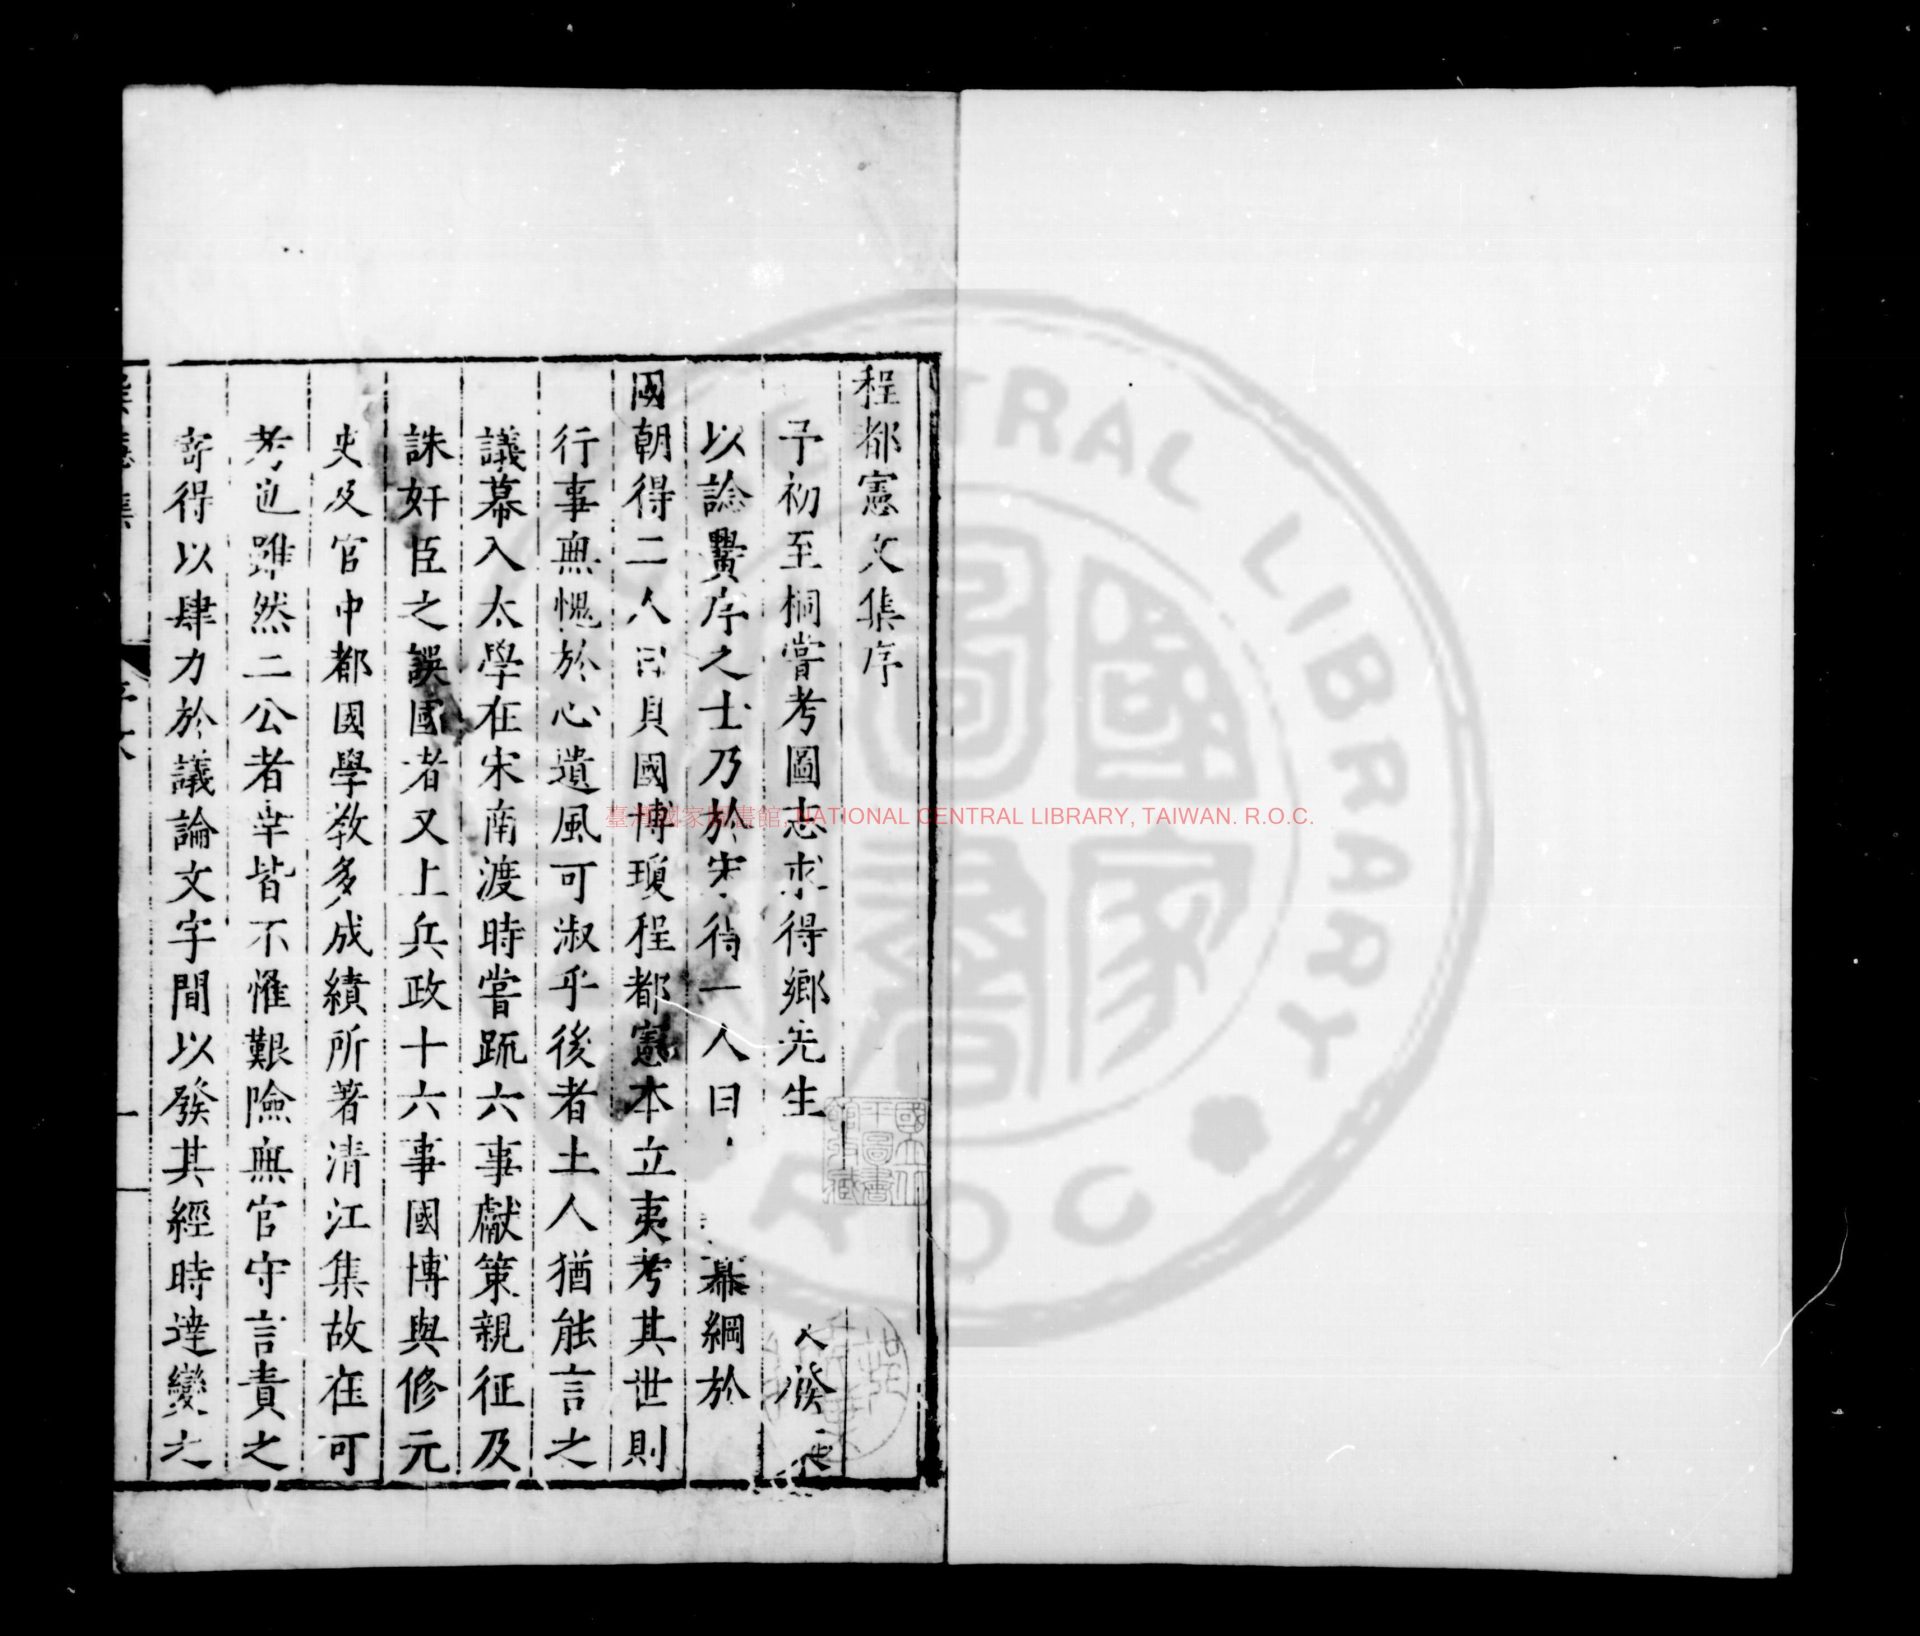 程都憲文集序
予初至桐嘗考圖志求得鄉先生
以諗黌序之士乃於宋得一人曰
幕綱於
國朝得二人曰貝國博瓊程都憲本立夷考其世則
行事無愧於心遺風可淑乎後者土人猶能言之
議幕入太學在宋南渡時嘗䟽六事獻策親征及
誅奸臣之誤國者又上兵政十六事國博與修元
史及官中都國學教多成績所著清江集故在可
考也雖然二公者幸皆不惟艱險無官守言責之
寄得以肆力於議論文字間以發其經時達變之
臺灣國家圖書館, NATIONAL CENTRAL LIBRARY, TAIWAN. R.O.C.